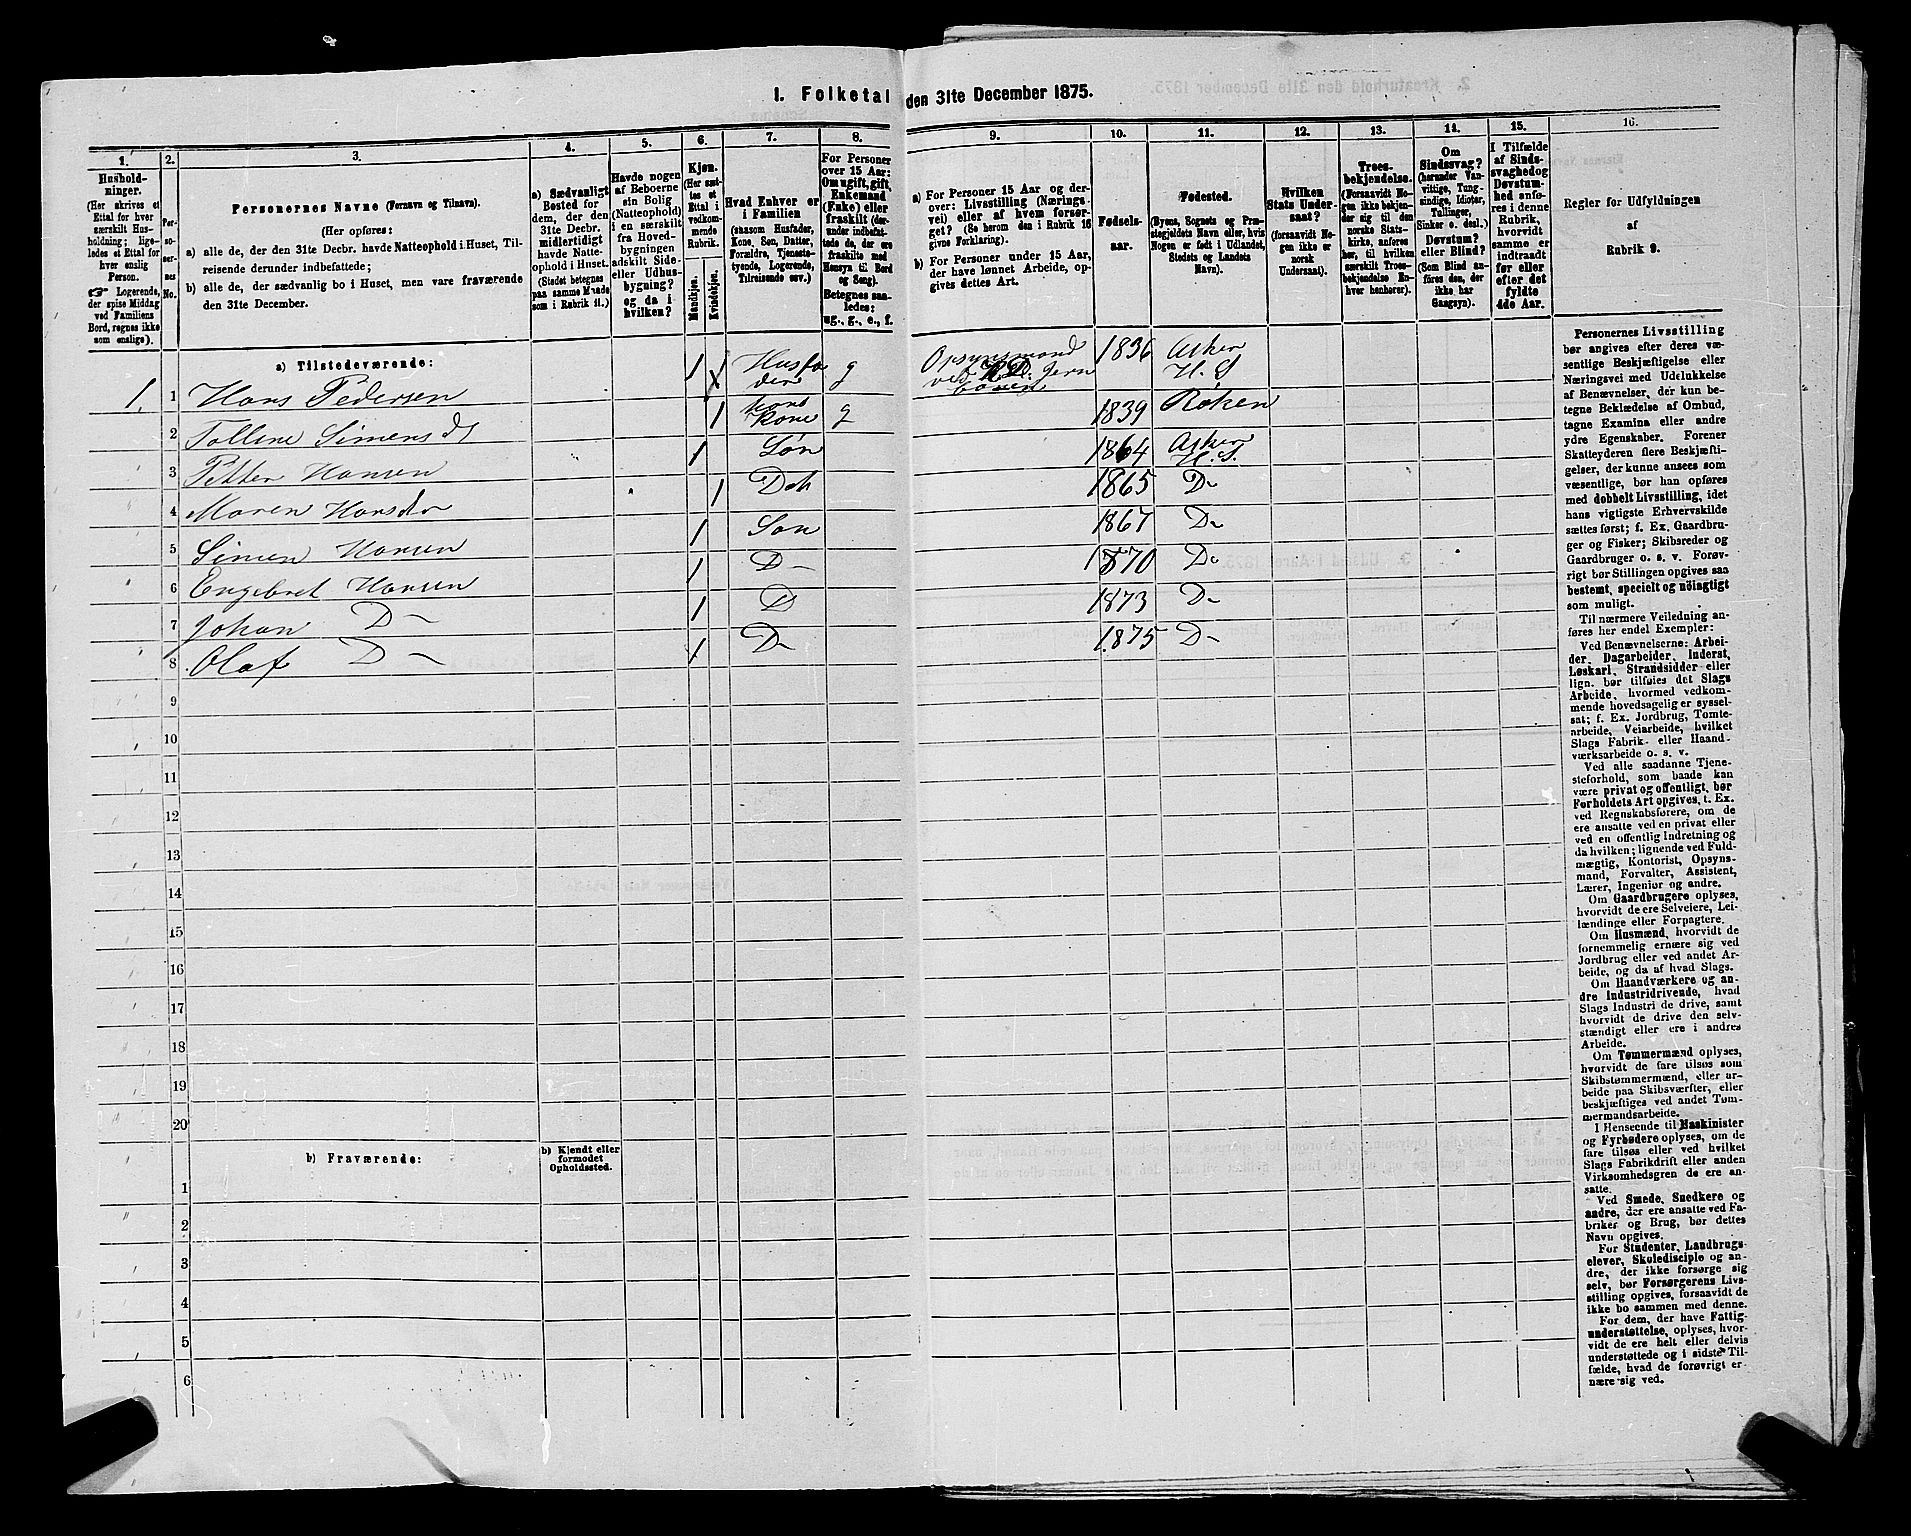 1. Folketal den 31te December 1875.
1. 2. 3. 4. 5. 6. 7. 8. 9. 10. 11. 12. 13. 14. 15. 16.
Hushold-
ninger.
(Her skrives et
Ettal for hver
særskilt Hus-
holdning; lige-
ledes et Ettal for
hver enslig
Person.
☞ Logerende,
der spise Middag
ved Familiens
Bord, regnes ikke
som enslige).
Per-
so-
ner-
nes
No.
Personernes Navne (Fornavn og Tilnavn).
(Her opføres:
a) alle de, der den 31te Decbr. havde Natteophold i Huset, Til-
reisende derunder indbefattede;
b) alle de, der sædvanlig bo i Huset, men vare fraværende
den 31te December.
a) Sædvanligt
Bosted for
dem, der den
31te Decbr.
midlertidigt
havde Natte-
ophold i Huset.
(Stedet betegnes
paa samme Maade
som i Rubrik 11.)
Havde nogen
af Beboerne
sin Bolig
(Natteophold)
i en særskilt
fra Hoved-
bygningen
adskilt Side-
eller Udhus-
bygning?
og da i
hvilken?
Kjøn.
(Her sæt-
tes et
Ettal i
vedkom-
mende
Rubrik.
Mandkjøn.
Kvindekjøn.
Hvad Enhver var
i Familien
(saasom Husfader,
Kone, Søn, Datter,
Forældre, Tjeneste-
tyende, Logerende,
Tilreisende osv.)
For Personer
over 15 Aar:
Om ugift, gift,
Enkemand
(Enke) eller
fraskilt (der-
under indbefat-
tede de, der ere
fraskilte med
Hensyn til Bord
og Seng).
Betegnes saa-
ledes:
ug., g., e., f.
a) For Personer 15 Aar og der-
over: Livsstilling (Nærings-
vei) eller af hvem forsør-
get? (Se herom den i Rubrik 16
givne Forklaring).
b) For Personer under 15 Aar,
der have lønnet Arbeide, op-
gives dettes Art.
Fødsels-
aar.
Fødested.
(Byens, Sognets og Præ-
stegjeldets Navn eller, hvis
Nogen er født i Udlandet,
Stedets og Landets
Navn).
Hvilken
Stats Under-
saat?
(forsaavidt No-
gen ikke er
norsk
Undersaat).
Troes-
bekjendelse.
(Forsaavidt No-
gen ikke bekjen-
der sig til den
norske Stats-
kirke, anføres
her, til hvilken
særskilt Troes-
bekjendelse En-
hver henhører).
Om
Sindssvag?
(herunder Van-
vittige, Tung-
sindige, Idioter,
Tullinger,
Sinker o. desl.)
Døvstum?
eller Blind?
(Som Blind an-
føres den, der
ikke har
Gangsyn).
I Tilfælde
af Sinds-
svaghed og
Døvstum-
hed anføres
i denne
Rubrik,
hvorvidt
samme er
indtraadt
før eller
efter det
fyldte
4de Aar.
Regler for Udfyldningen
af
Rubrik 9.
a) Tilstedeværende:
1. 1 Hans Pedersen 1 Husfa
der g Opsynsmand
ved Jern
banen 1836 Asker
H. S
2 Tolline Simensd 1 hans
Kone g 1839 Røken
3 Petter Hansen 1 Søn 1864 Asker
H. S.
4 Maren Hansdr 1 Dat 1865 D-
5 Simen Hansen 1 Søn 1867 D-
6 Engebret Hansen 1 D- 1870 Do
7 Johan D- 1 D 1873 D-
8 Olaf D- 1 D- 1875 D-
9
10
11
12
13
14
15
16
17
18
19
20
b) Fraværende:
b) Kjendt eller
formodet
Opholdssted.
1
2
3
4
5
6
Personernes Livsstilling
bør angives efter deres væ-
sentlige Beskjæftigelse eller
Næringsvei med Udelukkelse
af Benævnelser, der kun be-
tegne Beklædelse af Ombud,
tagne Examina eller andre
ydre Egenskaber. Forener
Skatteyderen flere Beskjæfti-
gelser, der kunne ansees som
væsentlige, bør han opføres
med dobbelt Livsstilling, idet
hans vigtigste Erhvervskilde
sættes først; f. Ex. Gaardbru-
ger og Fisker; Skibsreder og
Gaardbruger o. s. v. Forøv-
rigt bør Stillingen opgives saa
bestemt, specielt og nøiagtigt
som muligt.
Til nærmere Veiledning an-
føres her endel Exempler:
Ved Benævnelserne: Arbei-
der, Dagarbeider, Inderst,
Løskarl, Strandsidder eller
lign. bør tilføies det Slags
Arbeide, hvormed vedkom-
mende hovedsagelig er syssel-
sat; f. Ex. Jordbrug, Tomte-
arbeide, Veiarbeide, hvilket
Slags Fabrik- eller Haand-
værksarbeide o. s. v.
Ved alle saadanne Tjene-
steforhold, som baade kan
være privat og offentligt, bør
Forholdets Art opgives, t. Ex.
ved Regnskabsførere, om de
ere ansatte ved en privat eller
ved en offentlig Indretning og
da hvilken; lignende ved Fuld-
mægtig, Kontorist, Opsyns-
mand, Forvalter, Assistent,
Lærer, Ingeniør og andre.
Om Gaardbrugere oplyses,
hvorvidt de ere Selveiere, Lei-
lændinge eller Forpagtere.
Om Husmænd, hvorvidt de
fornemmelig ernære sig ved
Jordbrug eller ved andet Ar-
beide, og da af hvad Slags.
Om Haandværkere og an-
dre Industridrivende, hvad
Slags Industri de drive, samt
hvorvidt de drive den selv-
stændigt eller ere i andres
Arbeide.
Om Tømmermænd oplyses,
hvorvidt de fare tilsøs som
Skibstømmermænd, eller ar-
beide paa Skibsværfter, eller
beskjæftiges ved andet Tøm-
mermandsarbeide.
I Henseende til Maskinister
og Fyrbødere oplyses, om de
fare tilsøs eller ved hvilket
Slags Fabrikdrift eller anden
Virksomhedsgren de ere an-
satte.
Ved Smede, Snedkere og
andre, der ere ansatte ved Fa-
briker og Brug, bør dettes
Navn opgives.
For Studenter, Landbrugs-
elever, Skoledisciple og an-
dre, der ikke forsørge sig
selv, bør Forsørgerens Livs-
stilling opgives, forsaavidt de
ikke bo sammen med denne.
For dem, der have Fattig-
understøttelse, oplyses, hvor-
vidt de ere helt eller delvis
understøttede og i sidste Til-
fælde, hvad de forøvrigt er-
nære sig ved.